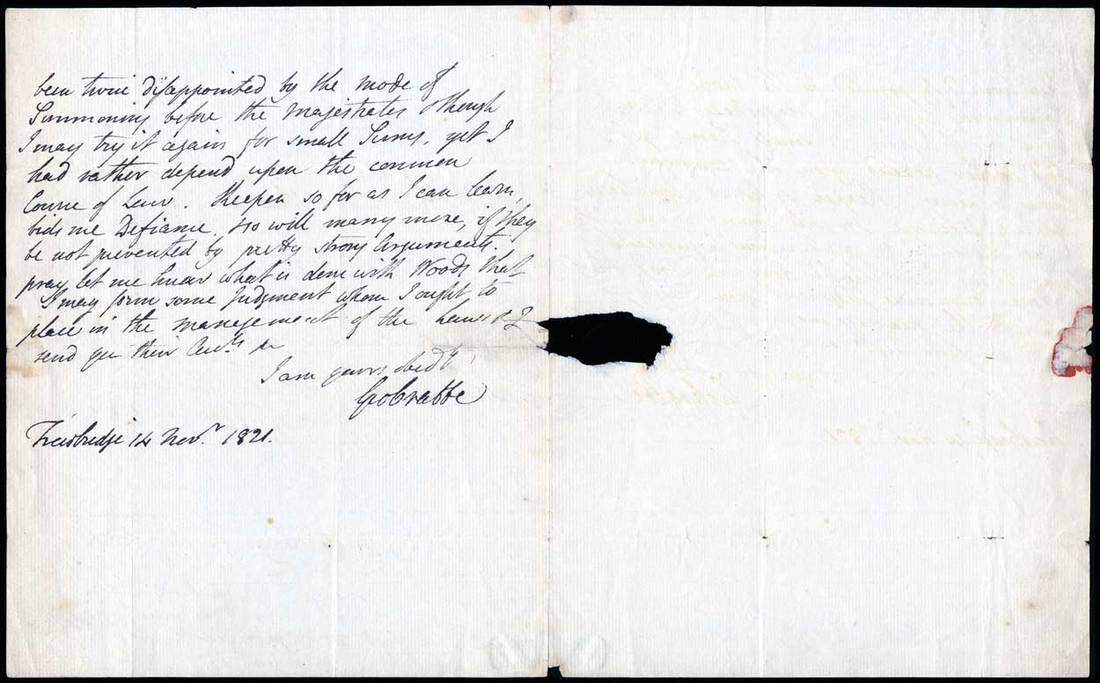 been twice disappointed by the mode of
Summoning before the Magistrates & though
I may try it again for small Sums, yet I
had rather depend upon the common
Course of Law. so far as I can learn,
bids me Defiance, & so will many more, if they
be not prevented by pretty strong Arguments.
pray let me know what is done with Woods that
I may form some Judgment whom I ought to
place in the management of the &
send you their &c
I am yours obedt.
Geo Crabbe
Trowbridge 14 Novr. 1821.